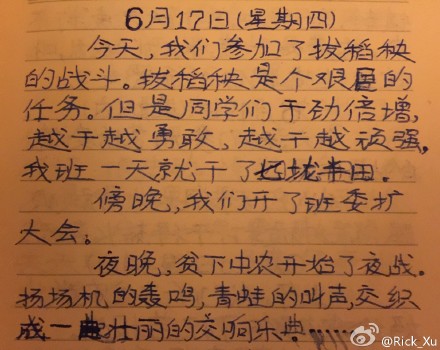 6月17日(星期四)
今天,我们参加了拔稻秧
的战斗。拔稻秧是个艰巨的
任务。但是同学们干劲倍增,
越干越勇敢,越干越顽强,
我班一天就干了田.
傍晚,我们开了班委扩
大会。
夜晚,贫下中农开始了夜战.
扬场机的轰鸣,青蛙的叫声,交织
成一壮丽的交响乐典……
@Rick_Xu